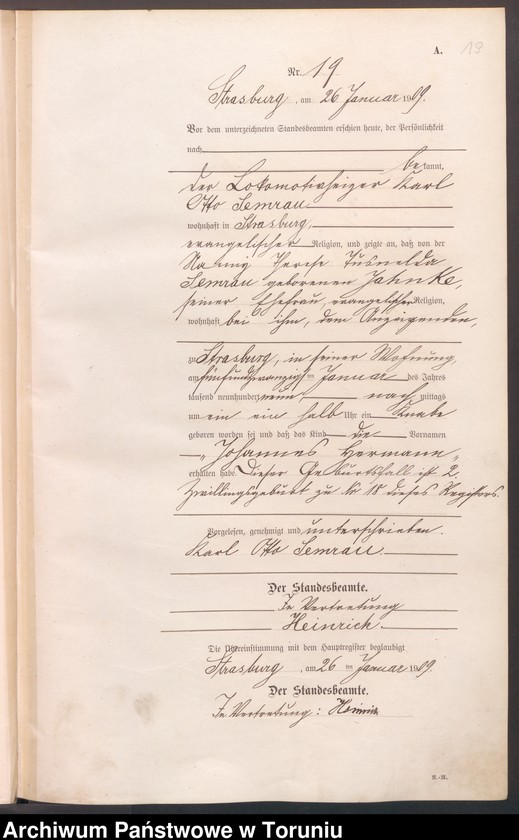 A. 19
Nr. 19
Strasburg, am 26 Januar 1909.
Vor dem unterzeichneten Standesbeamten erschien heute, der Persönlichkeit
nach
bekannt,
der Lokomotivheizer Karl
Otto Semrau
wohnhaft in Strasburg,
evangelischer Religion, und zeigte an, daß von der
Therese Tusnelda
Semrau geborenen Jahnke,
seiner Ehefrau, evangelischer Religion,
wohnhaft bei ihm, dem Anzeigenden,
zu Strasburg, in seiner Wohnung,
am fünfundzwanzigsten Januar des Jahres
tausend neunhundert neun nachmittags
um ein ein halb Uhr ein Knabe
geboren worden sei und daß das Kind die Vornamen
„Johannes Hermann“
erhalten habe. Dieser Geburtsfall ist 2.
Zwillingsgeburt zu Nr 18 dieses Registers.
Vorgelesen, genehmigt und unterschrieben.
Karl Otto Semrau.
Der Standesbeamte.
In Vertretung
Heinrich.
Die Übereinstimmung mit dem Hauptregister beglaubigt
Strasburg, am 26 ten Januar 1909.
Der Standesbeamte.
In Vertretung: Heinrich
Archiwum Państwowe w Toruniu